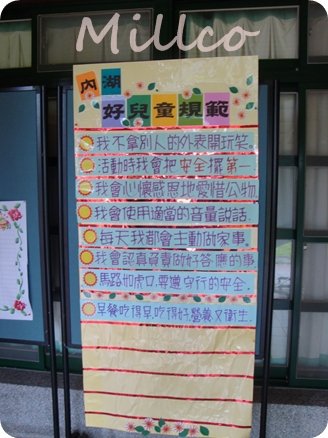 Millco
內湖
好兒童規範
我不拿別人的外表開玩笑。
活動時我會把安全擺第一
我會心懷感恩地愛惜公物
我會使用適當的音量說話.
每天我都會主動做家事。
我會認真負責做好答應的事
馬路如虎口,要遵守行的安全.
早餐吃得早,吃得好,營養又衛生